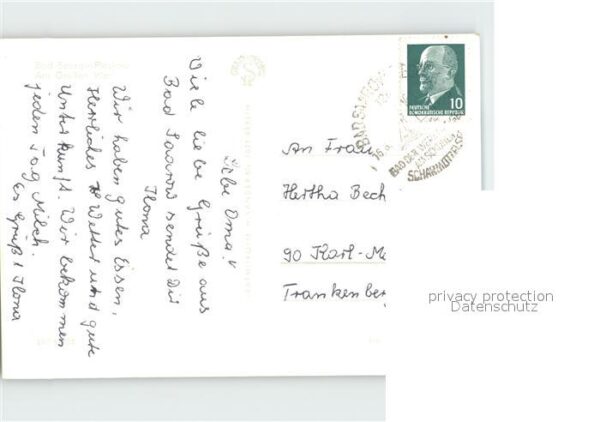 Bad Saarow-Pieskow
Am Großen Wall
Liebe Oma!
Viele liebe Grüße aus
Bad Saarow sendet Dir
Ilona
Wir haben gutes Essen,
Herrliches Wetter und gute
Unterkunft. Wir bekommen
jeden Tag Milch.
Es Grüßt Ilona
10
DEUTSCHE
DEMOKRATISCHE REPUBLIK
BAD SAAROW
BAD DER
SCHARMÜTZELSEE
An Frau
Hertha Bech
90 Karl-Ma
Frankenber
privacy protection
Datenschutz